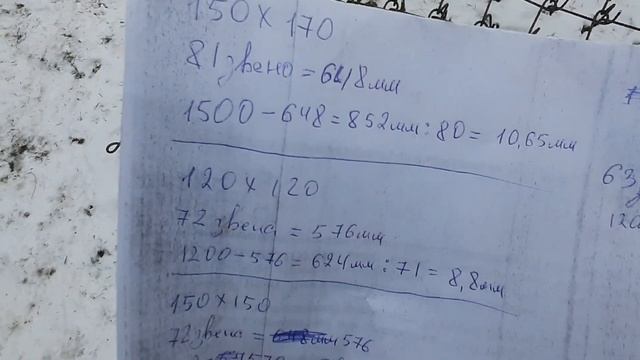 150 x 170
81 звено = 648мм
1500 - 648 = 852мм : 80 = 10,65мм
120 x 120
72 звена = 576мм
1200 - 576 = 624мм : 71 = 8,8мм
150 x 150
72 звена = 576
63